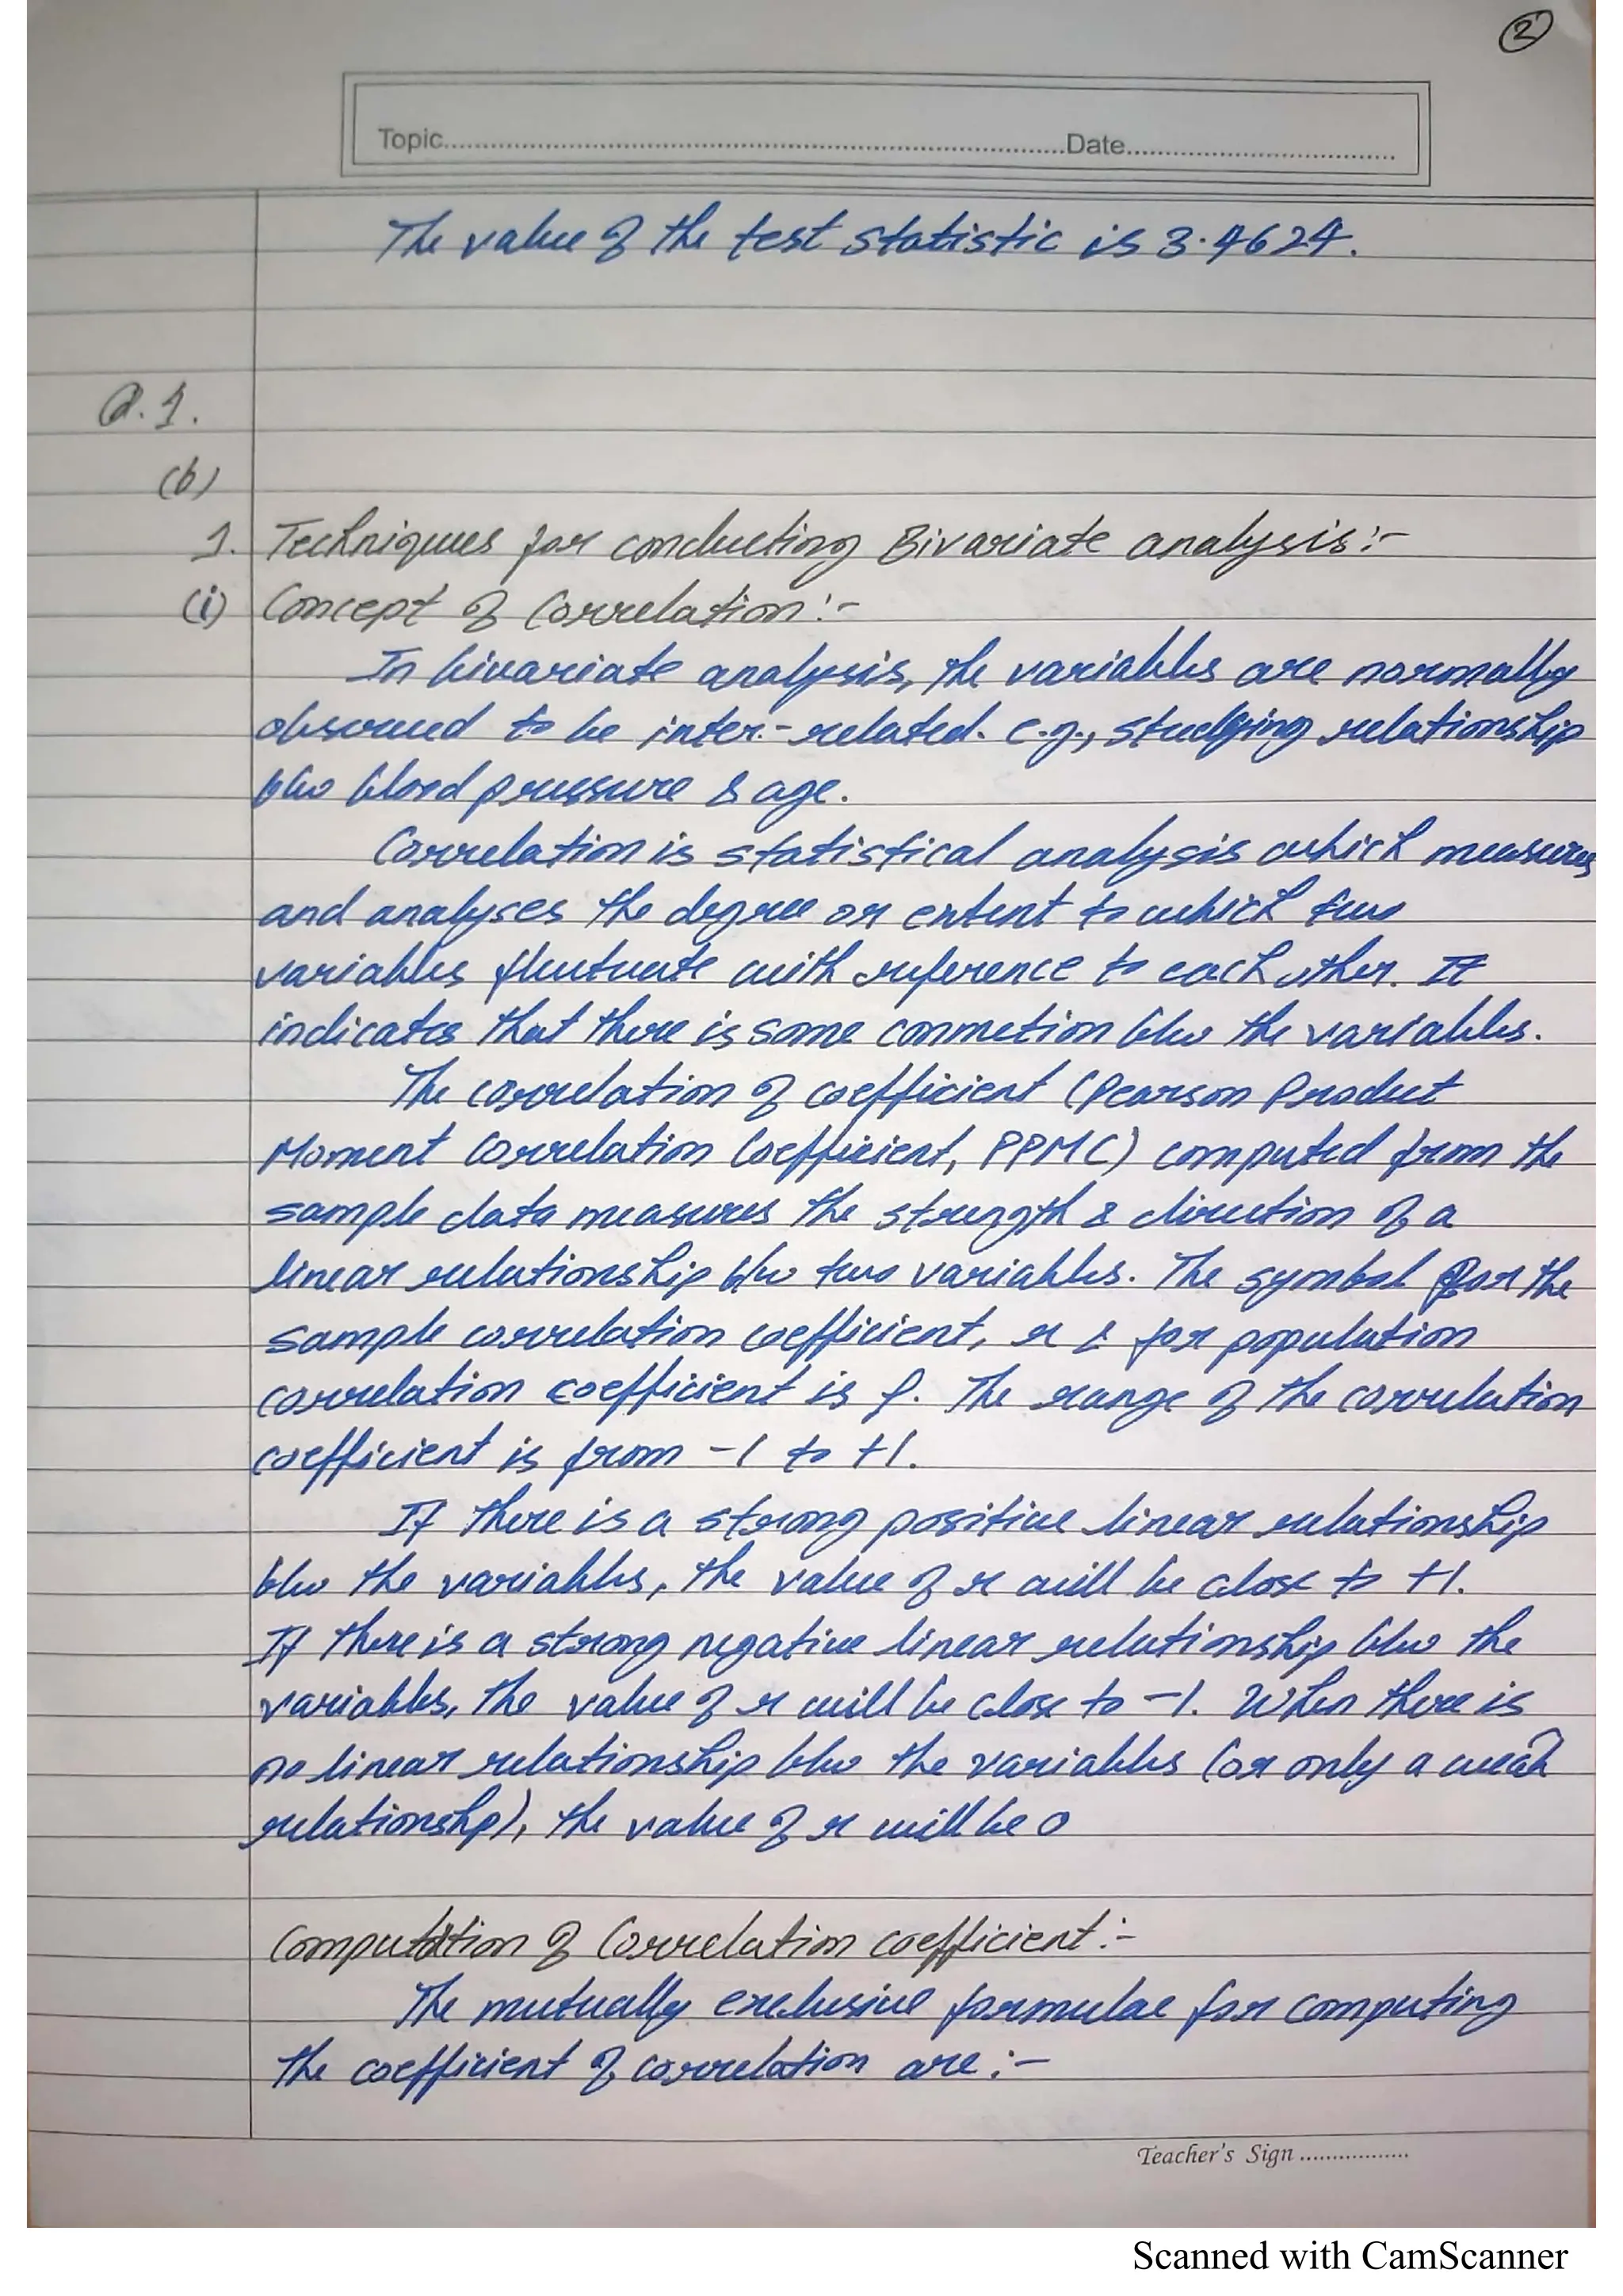 2
Topic..........Date..........
The value of the test statistic is 3.4624.
Q.1.
(b)
1. Techniques for conducting Bivariate analysis:-
(i) Concept of Correlation:-
In bivariate analysis, the variables are normally
observed to be inter-related. e.g., studying relationship
b/w blood pressure & age.
Correlation is statistical analysis which measures
and analyses the degree or extent to which two
variables fluctuate with reference to each other. It
indicates that there is some connection b/w the variables.
The correlation of coefficient (Pearson Product
Moment Correlation Coefficient, PPMC) computed from the
sample data measures the strength & direction of a
linear relationship b/w two variables. The symbol for the
sample correlation coefficient, r & for population
correlation coefficient is ρ. The range of the correlation
coefficient is from -1 to +1.
If there is a strong positive linear relationship
b/w the variables, the value of r will be close to +1.
If there is a strong negative linear relationship b/w the
variables, the value of r will be close to -1. When there is
no linear relationship b/w the variables (or only a weak
relationshp), the value of r will be 0
Computation of Correlation coefficient:-
The mutually exclusive formulae for computing
the coefficient of correlation are:-
Teacher's Sign ..........
Scanned with CamScanner